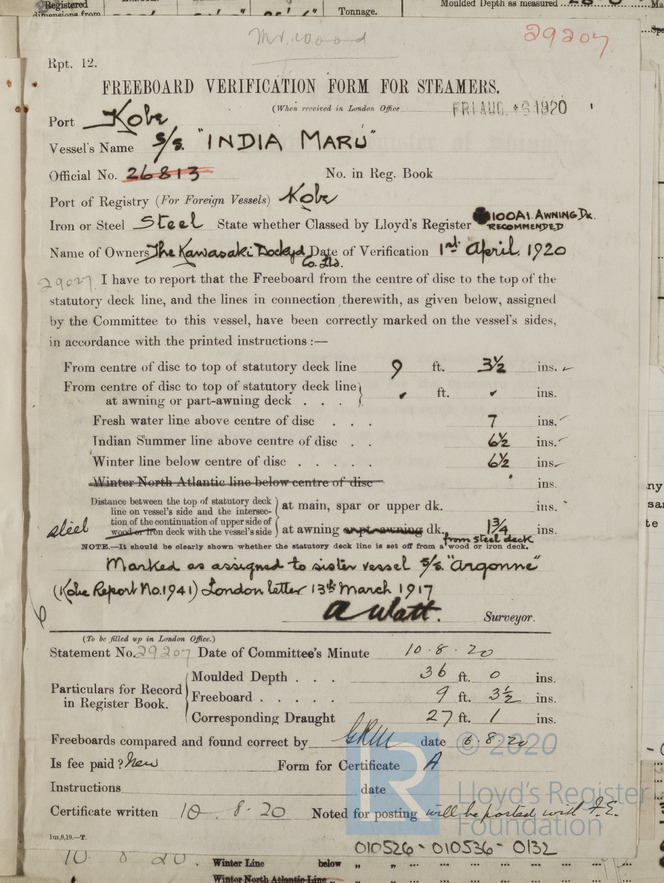 Registered
dimensions from
Tonnage.
Moulded Depth as measured
Mr. Wood
29207
Rpt. 12.
FREEBOARD VERIFICATION FORM FOR STEAMERS.
(When received in London Office FRI AUG 6 1920
Port Kobe
Vessel's Name S/S. "INDIA MARU"
Official No. 26813 No. in Reg. Book
Port of Registry (For Foreign Vessels) Kobe
Iron or Steel Steel State whether Classed by Lloyd's Register 100A1. AWNING DK. RECOMMENDED
Name of Owners The Kawasaki Dockyd Co. Ltd. Date of Verification 1st April 1920
29027 I have to report that the Freeboard from the centre of disc to the top of the
statutory deck line, and the lines in connection therewith, as given below, assigned
by the Committee to this vessel, have been correctly marked on the vessel's sides,
in accordance with the printed instructions :—
From centre of disc to top of statutory deck line 9 ft. 3½ ins.
From centre of disc to top of statutory deck line
at awning or part-awning deck . . . ft. ins.
Fresh water line above centre of disc . . . 7 ins.
Indian Summer line above centre of disc . . 6½ ins.
Winter line below centre of disc . . . . . 6½ ins.
Winter North Atlantic line below centre of disc ins.
Distance between the top of statutory deck
line on vessel's side and the intersec- at main, spar or upper dk. ins.
tion of the continuation of upper side of
steel wood or iron deck with the vessel's side at awning or pt.-awning dk. 1¾ ins.
from steel deck
NOTE.—It should be clearly shown whether the statutory deck line is set off from a wood or iron deck.
Marked as assigned to sister vessel S/S. "Argonne"
(Kobe Report No. 1941) London letter 13th March 1917
A Watt. Surveyor.
(To be filled up in London Office.)
Statement No. 29207 Date of Committee's Minute 10.8.20
Particulars for Record
in Register Book.
Moulded Depth . . . 36 ft. 0 ins.
Freeboard . . . . . 9 ft. 3½ ins.
Corresponding Draught 27 ft. 1 ins.
Freeboards compared and found correct by date 6.8.20
Is fee paid? New Form for Certificate A
Instructions date
Certificate written 10.8.20 Noted for posting will be posted with F.E.
1m,8,19.—T.
© 2020
Lloyd's Register
Foundation
010526-010536-0132
10 8 20.
Winter Line below
Winter North Atlantic Line